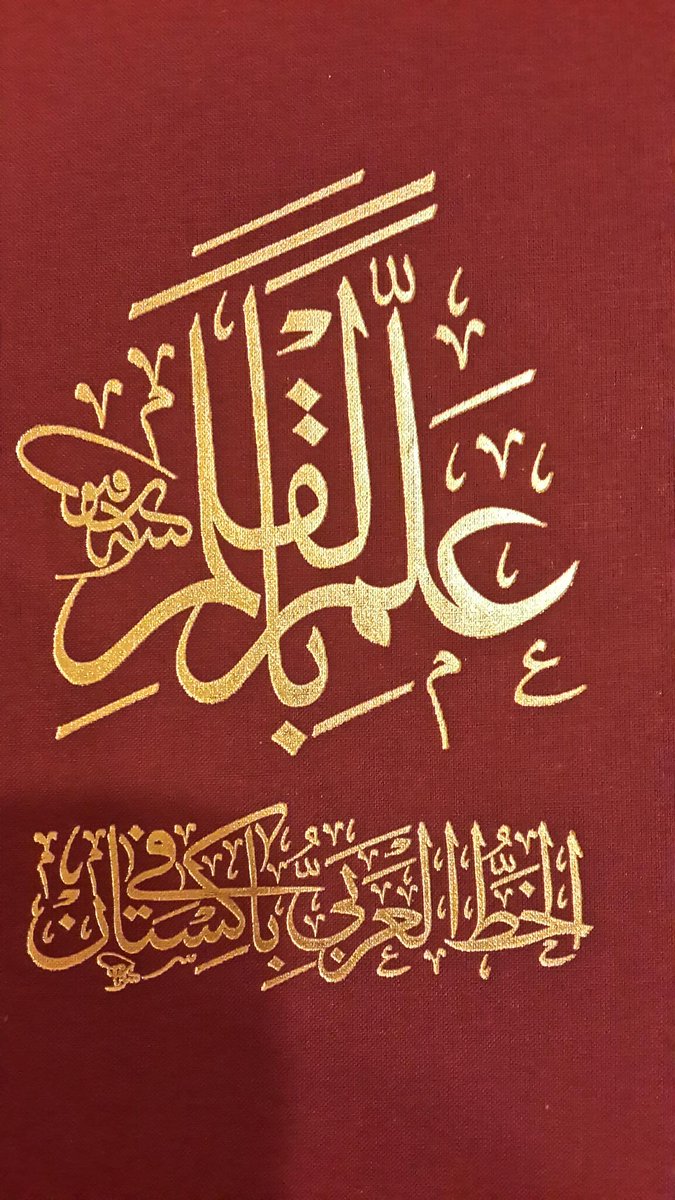 عَلَّمَ بِالْقَلَمِ
الخَطُّ العَرَبِيُّ فِي بَاكِسْتَان